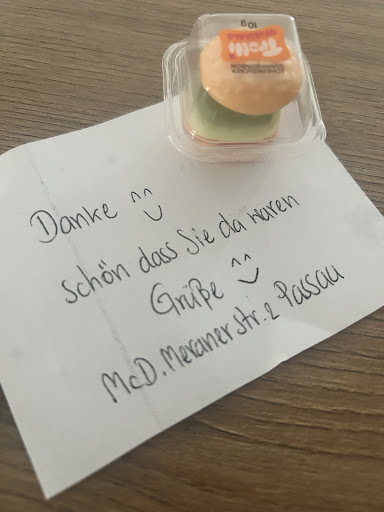 10g
Trolli
Danke ^^
schön dass Sie da waren
Grüße ^^
McD. Meraner str. 2 Passau